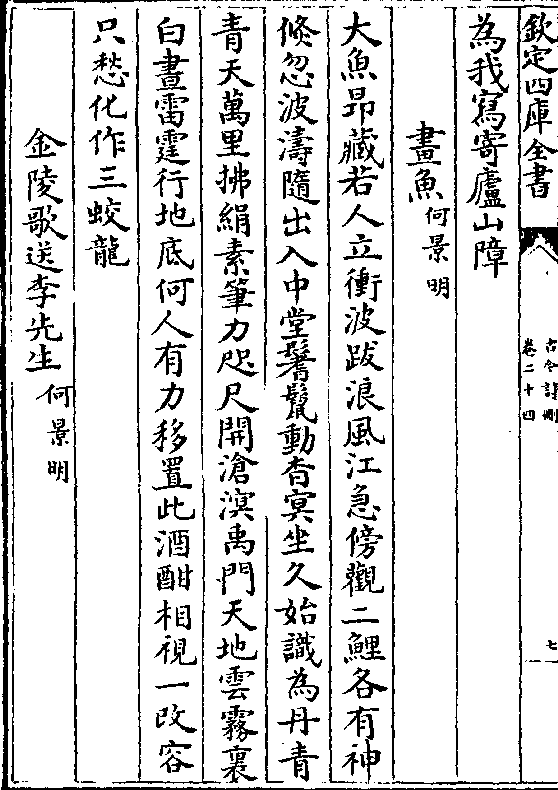 欽定四庫全書
古今詩刪
卷二十四
七
為我寫寄廬山障
畫魚何景明
大魚昻藏若人立衝波跋浪風江急傍觀二鯉各有神
倐忽波濤隨出入中堂鬐鬛動杳冥坐久始識為丹青
青天萬里拂絹素筆力咫尺開滄溟禹門天地雲霧裏
白晝雷霆行地底何人有力移置此酒酣相視一改容
只愁化作三蛟龍
金陵歌送李先生何景明